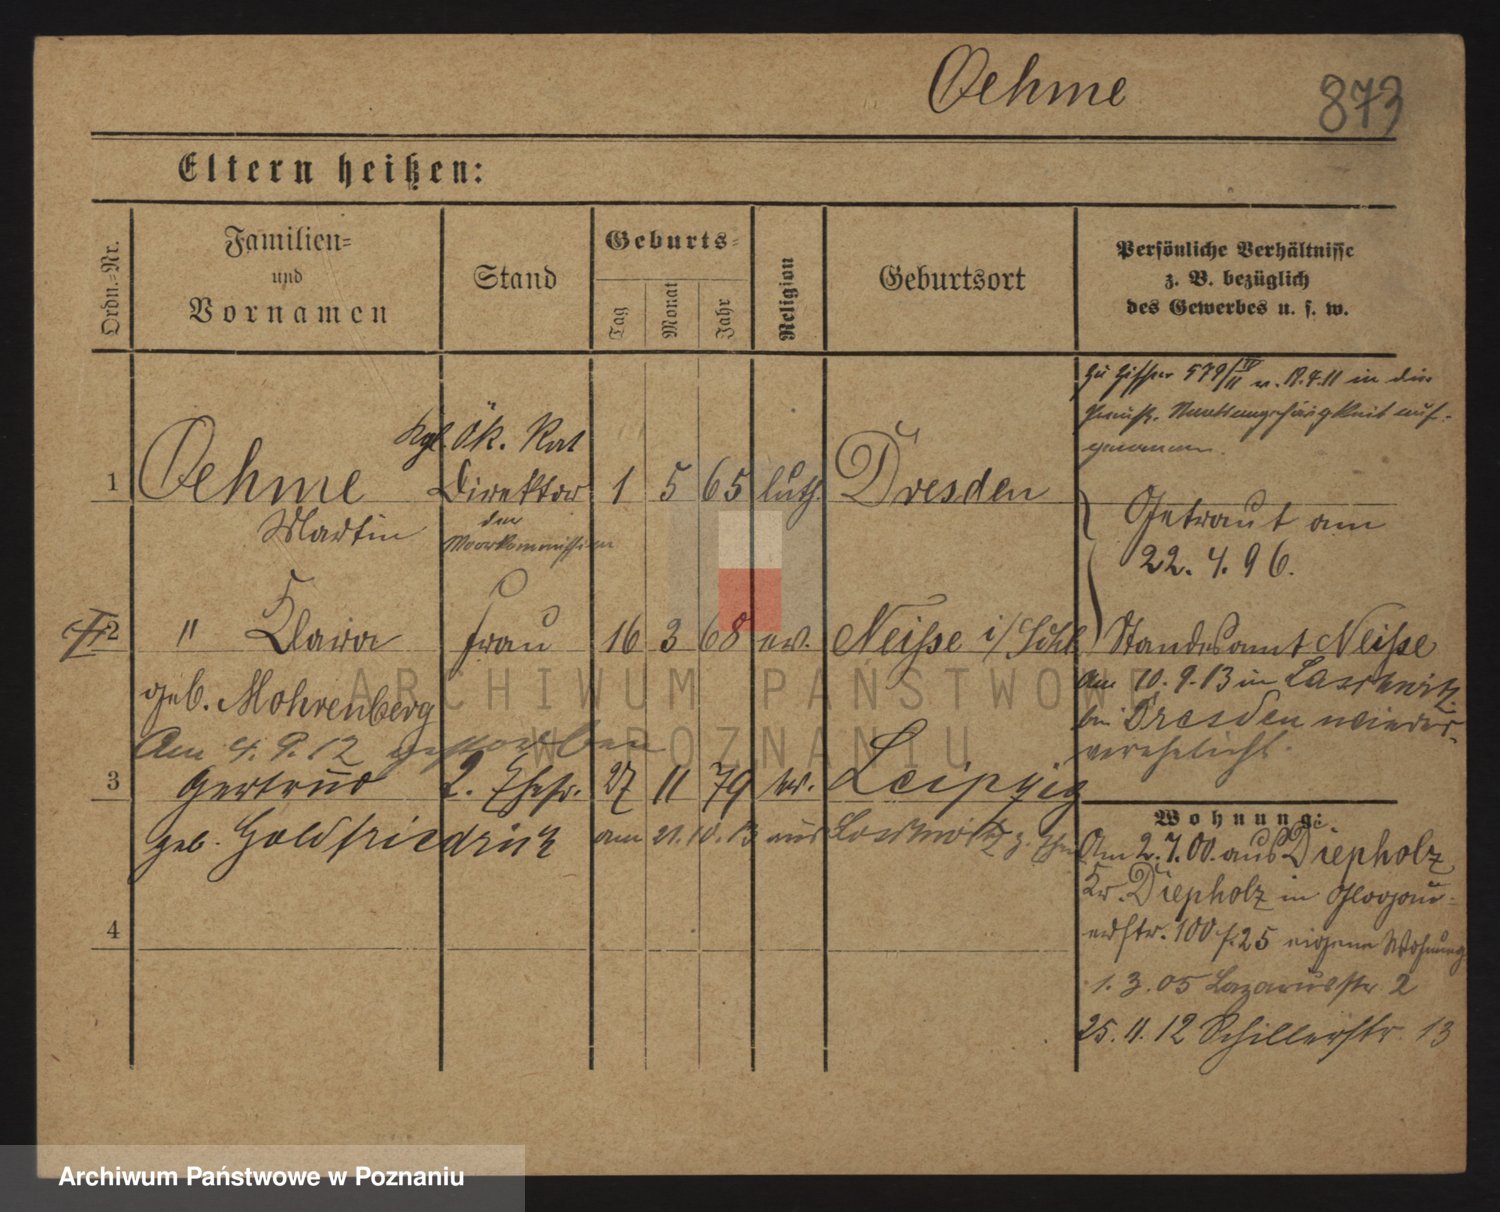 Oehme
873
Eltern heißen:
Ordn.-Nr.
Familien-
und
Vornamen
Stand
Geburts-
Tag
Monat
Jahr
Religion
Geburtsort
Persönliche Verhältnisse
z. B. bezüglich
des Gewerbes u. s. w.
Zu Ziffer 579/II v. 12.4.11 in die
Preuß. Staatsangehörigkeit auf-
genommen.
Kgl. Ök. Rat
1 Oehme Direktor 1 5 65 luth. Dresden
Martin der
Moorkommission
Getraut am
22.4.96.
2 " Klara Frau 16 3 68 ev. Neiße i/Schl.
Standesamt Neiße
geb. Mohrenberg
Am 10.9.13 in Loschwitz
bei Dresden wieder-
verehelicht.
Am 4.9.12 gestorben
3 Gertrud 2. Ehefr. 27 11 79 ev. Leipzig
geb. Goldfriedrich am 21.10.13 aus Loschwitz z. Ehm.
Wohnung:
Am 2.7.00. aus Diepholz
Kr. Diepholz in Glogau-
erstr. 100 f. 25 eigene Wohnung
1.3.05 Lazarusstr. 2
25.11.12 Schillerstr. 13
4
ARCHIWUM PAŃSTWOWE
W POZNANIU
Archiwum Państwowe w Poznaniu